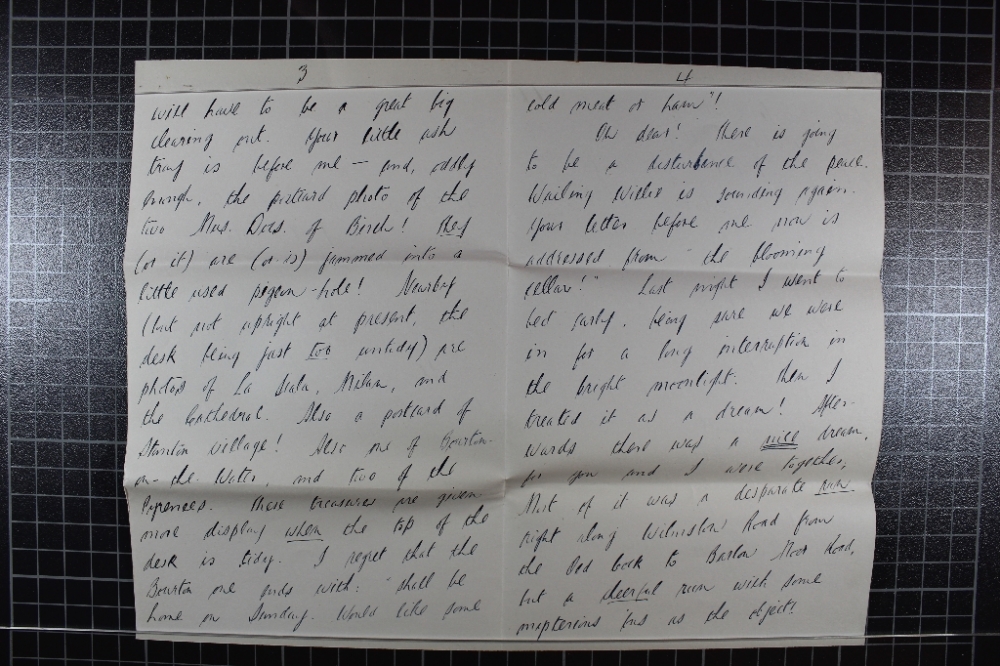 3
will have to be a great big
clearing out. Your little ash
tray is before me — and, oddly
enough, the postcard photo of the
two Mrs. Docs. of Birch! They
(or it) are (or is) jammed into a
little used pigeon-hole! Nearby
(but not upright at present, the
desk being just too untidy) are
photos of La Scala, Milan, and
the Cathedral. Also a postcard of
Stanton village! Also one of Bourton-
on-the-Water, and two of the
Pyrenees. These treasures are given
more display when the top of the
desk is tidy. I regret that the
Bourton one ends with: "Shall be
home on Sunday. Would like some
4
cold meat or ham"!
Oh dear! There is going
to be a disturbance of the peace.
Wailing Willie is sounding again.
Your letter before me now is
addressed from "the blooming
cellar!" Last night I went to
bed early, being sure we were
in for a long interruption in
the bright moonlight. Then I
treated it as a dream! After-
wards there was a nice dream,
for you and I were together,
Most of it was a desparate run
right along Wilmslow Road from
the Old Cock to Barlow Moor Road,
but a cheerful run with some
mysterious bus as the object!